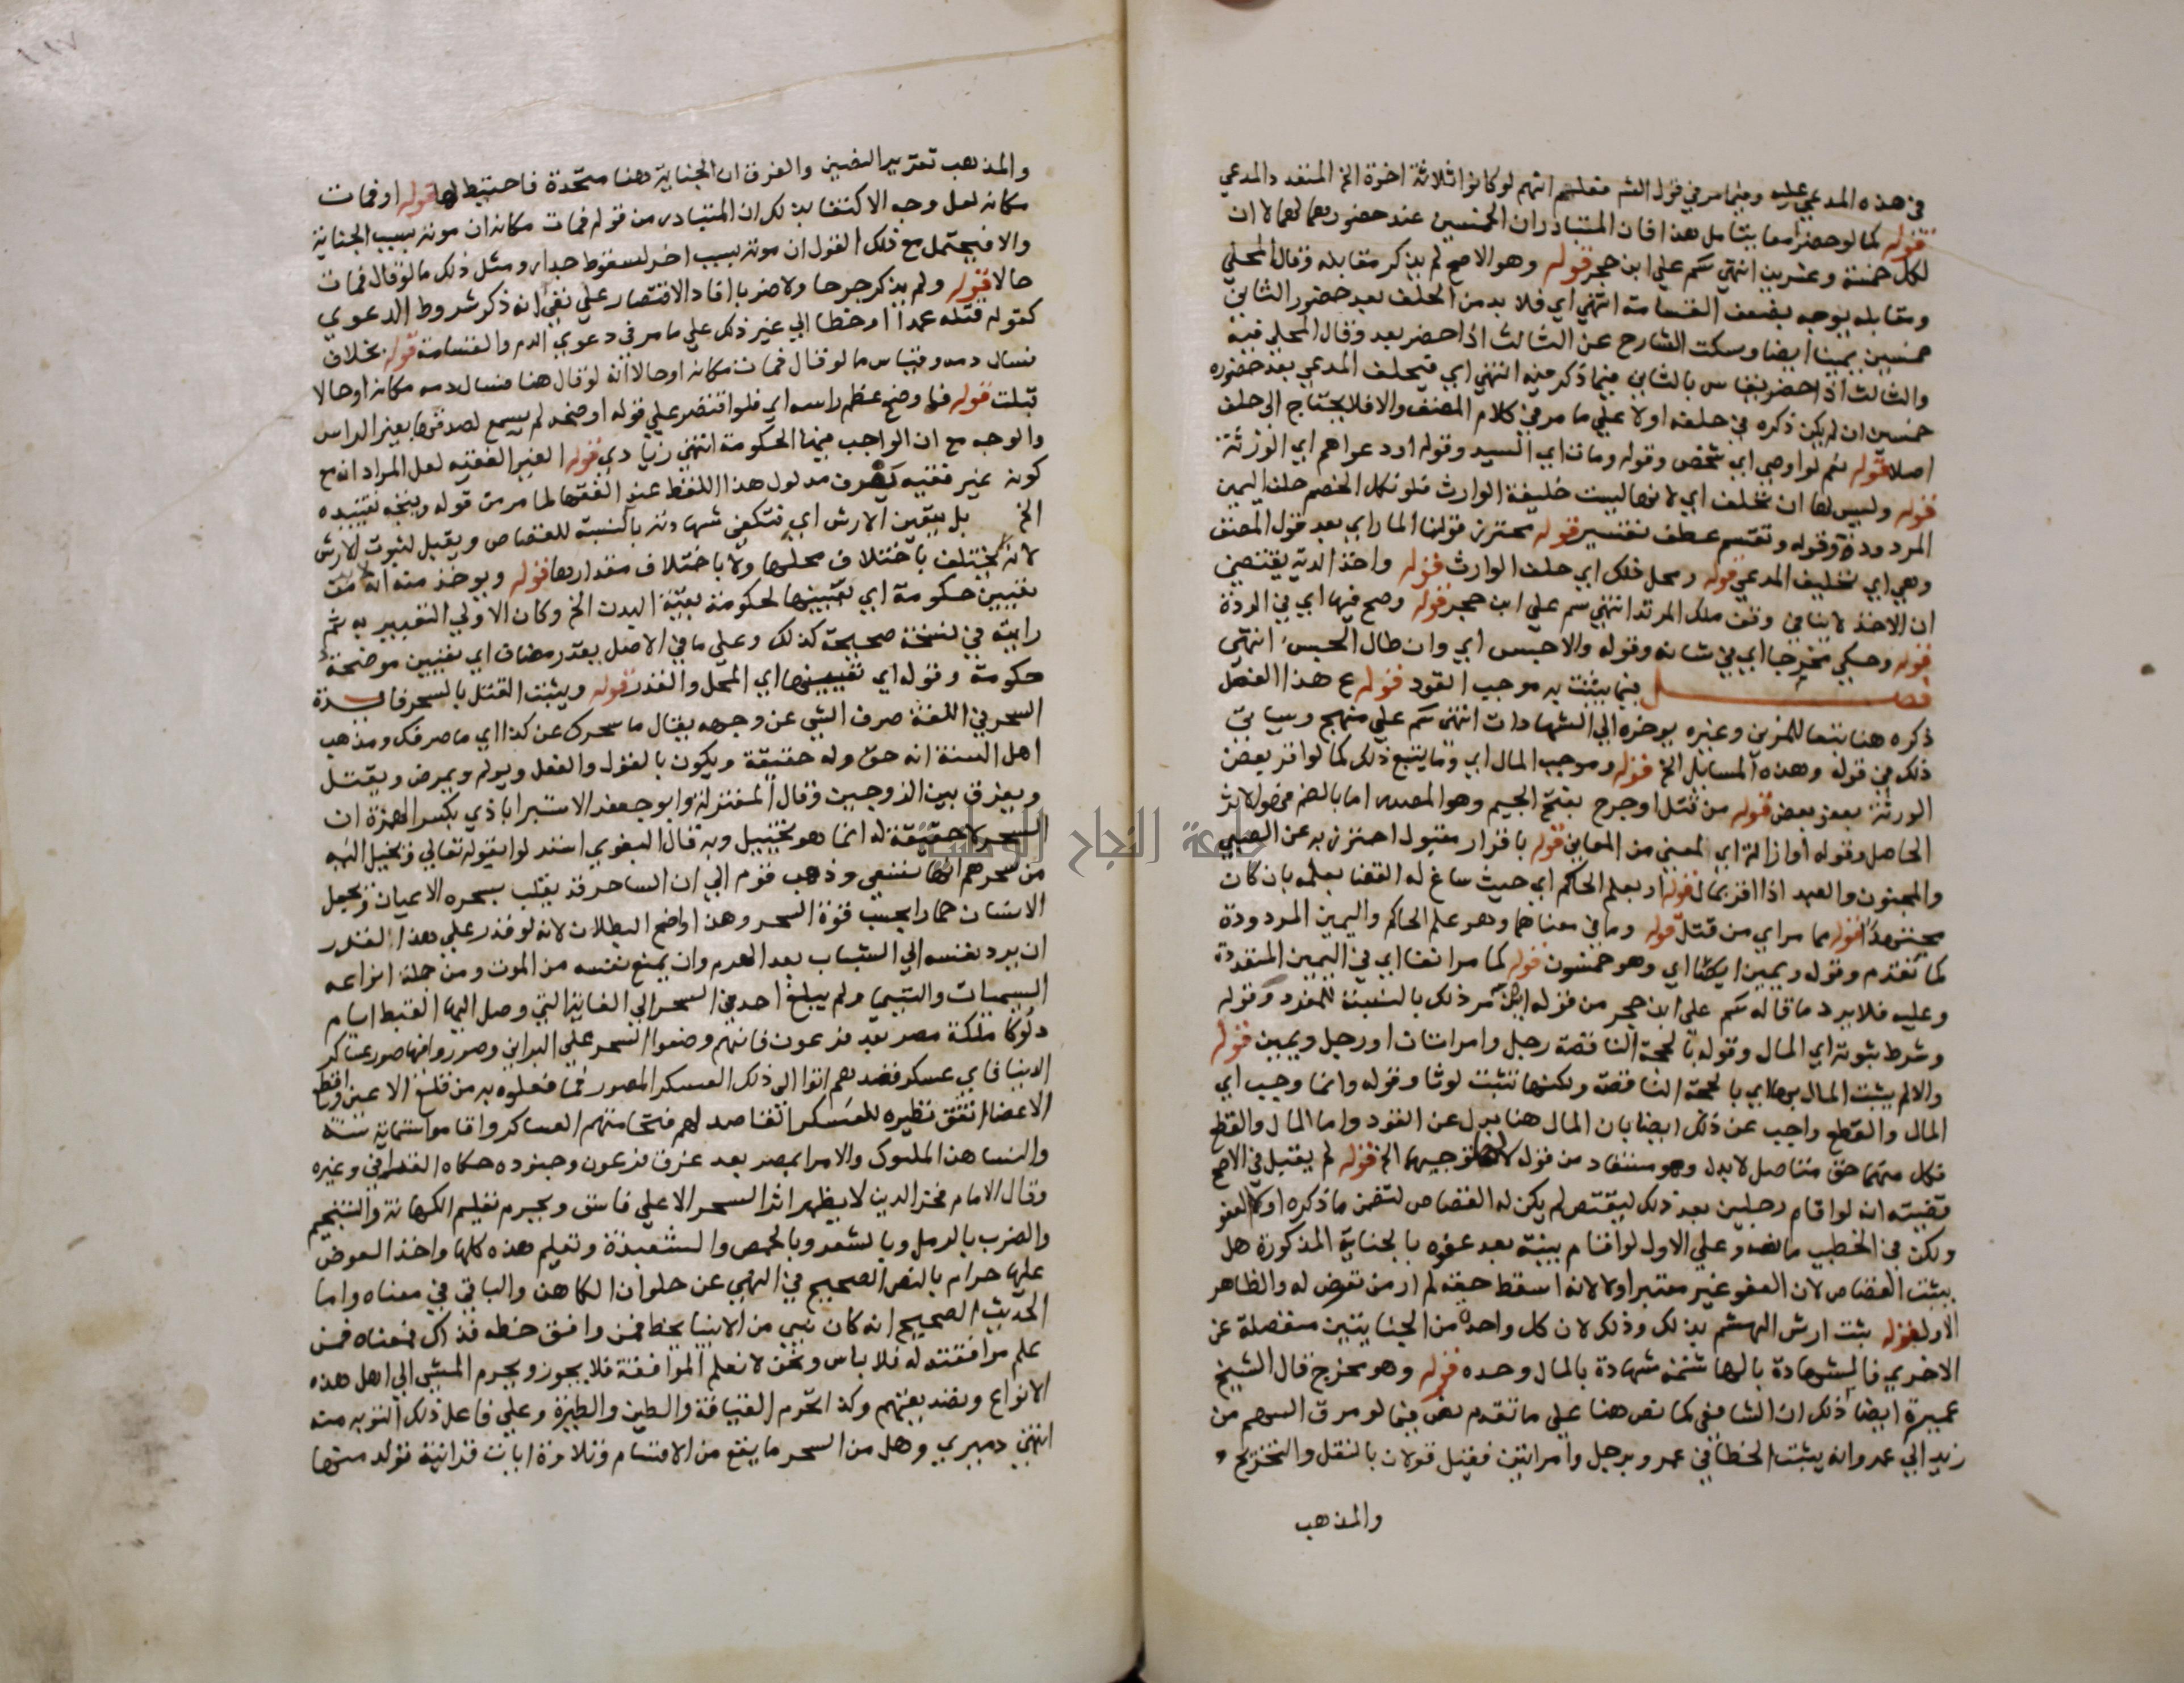 في هذه المدعي عليه وفيما مر في قول الشم فعليهم انهم لو كانوا ثلاثة اخوة الخ المنفرد والمدعي
قوله كما لو حضرا معا بتامل هذا فان المتبادر ان الخمسين عند حضورهما لهما لا ان
لكل خمسة وعشرين انتهي سم علي ابن حجر قوله وهو الاصح لم يذكر مقابله وقال المحلي
ومقابله يوجه بضعف القسامة انتهي اي فلا بد من الحلف بعد حضور الثاني
خمسين يمينا ايضا وسكت الشارح عن الثالث اذا حضر بعد وقال المحلي فيه
والثالث اذا حضر يقاس بالثاني فيما ذكر فيه انتهي اي فيحلف المدعي بعد حضوره
خمسين ان لم يكن ذكره في حلفه اولا علي ما مر في كلام المصنف والا فلا يحتاج الي حلف
اصلا قوله نعم لو اوصي اي شخص وقوله ومات اي السيد وقوله او دعواهم اي الورثة
قوله وليس لها ان تحلف اي لانها ليست خليفة الوارث فلو نكل الخصم حلف اليمين
المردودة وقوله وتقسم عطف تفسير قوله محترز قولنا المار اي بعد قول المصنف
وهي اي تحليف المدعي قوله ومحل ذلك اي حلف الوارث قوله واخذ الدية يقتضي
ان الاخذ لا ينافي وقف ملك المرتد انتهي سم علي ابن حجر قوله وصح فيها اي في الردة
قوله وحكي تخرجا اي في شانه وقوله والا حبس اي وان طال الحبس انتهي
فصل فيما يثبت به موجب القود قوله ع هذا الفصل
ذكره هنا تبعا للمزني وغيره يوخره الي الشهادات انتهي سم علي منهج وسياتي
ذلك في قوله وهذه المسايل الخ قوله وموجب المال اي وما يتبع ذلك كما لو اقر بعض
الورثة بعفو بعض قوله من قتل او جرح بفتح الجيم وهو المصدر اما بالضم فهو الاثر
الحاصل وقوله او ازالة اي لمعني من المعاني قوله باقرار مقبول احترز به عن الصبي
والمجنون والعبد اذا اقر بمال قوله او بعلم الحاكم اي حيث ساغ له القضا بعلمه بان كان
مجتهدا قوله مما مر اي من قتل قوله وما في معناهما وهو علم الحاكم واليمين المردودة
كما تقدم وقوله ويمين ايضا اي وهو خمسون قوله كما مر انفا اي في اليمين المتعددة
وعليه فلا يرد ما قاله سم علي ابن حجر من قوله مر ذلك بالنسبة للمفرد وقوله
وشرط ثبوته اي المال وقوله بالحجة الناقصة رجل وامراتان او رجل ويمين قوله
والا لم يثبت المال بها اي بالحجة الناقصة ولكنها تثبت لوثا وقوله وانما وجب اي
المال والقطع واجب عن ذلك ايضا بان المال هنا بدل عن القود واما المال والقطع
فكل منهما حق متاصل لا بدل وهو مستفاد من قوله توجيهها الخ قوله لم يقبل في الاصح
قضيته انه لو اقام رجلين بعد ذلك ليقتص لم يكن له القصاص لتضمن ما ذكره اولا العفو
ولكن في الخطيب ما نصه وعلي الاول لو اقام بينة بعد عفوه بالجناية المذكورة هل
يثبت القصاص لان العفو غير معتبر او لا لانه اسقط حقه لم ار من تعرض له والظاهر
الاول قوله يثبت ارش الهشم بذلك وذلك لان كل واحدة من الجنايتين منفصلة عن
الاخري فالشهادة بالهاشمة شهادة بالمال وحده قوله وهو مخرج قال الشيخ
عميرة ايضا ذلك ان الشافعي كما نص هنا علي ما تقدم نص فيما لو مرق السهم من
زيد الي عمرو انه يثبت الخطا في عمرو برجل وامراتين فقيل قولان بالنقل والتخريج
والمذهب
والمذهب تقرير النصين والفرق ان الجناية هنا متحدة فاحتيط لها قوله او فمات
مكانه لعل وجه الاكتفا بذلك ان المتبادر من قوله فمات مكانه ان موته بسبب الجناية
والا فيحتمل مع ذلك القول ان موته بسبب اخر لسقوط جدار ومثل ذلك ما لو قال فمات
حالا قوله ولم يذكر جرحا ولا ضربا افاد الاقتصار علي نفي انه ذكر شروط الدعوي
كقوله قتله عمدا او خطا الي غير ذلك علي ما مر في دعوي الدم والقسامة قوله بخلاف
فسال دمه وقياس ما لو قال فمات مكانه او حالا انه لو قال هنا فسال دمه مكانه او حالا
قبلت قوله فاوضح عظم راسه اي فلو اقتصر علي قوله اوضحه لم يسمع لصدقها بغير الراس
والوجه مع ان الواجب فيهما الحكومة انتهي زيادي قوله لغير الفقيه لعل المراد انه مع
كونه غير فقيه يعرف مدلول هذا اللفظ عند الفقها لما مر من قوله ويتجه تقييده
الخ بل يتعين الارش اي فتكفي شهادته بالنسبة للقصاص ويقبل لثبوت الارش
لانه لا يختلف باختلاف محلها ولا باختلاف مقدارها قوله ويوخذ منه انه متي
تعيين حكومة اي تعيينها لحكومة بقية البدن الخ وكان الاولي التعبير به ثم
رايته في نسخة صحيحة كذلك وعلي ما في الاصل يقدر مضاف اي تعيين موضحة
حكومة وقوله اي تعيينها اي المحل والقدر قوله ويثبت القتل بالسحر فايدة
السحر في اللغة صرف الشي عن وجهه يقال ما سحرك عن كذا اي ما صرفك ومذهب
اهل السنة انه حق وله حقيقة ويكون بالقول والفعل ويولم ويمرض ويقتل
ويفرق بين الزوجين وقال المعتزلة وابو جعفر الاستراباذي بكسر الهمزة ان
السحر لا حقيقة له انما هو تخييل وبه قال البغوي استدلوا بقوله تعالي يخيل اليه
من سحرهم انها تسعي وذهب قوم الي ان الساحر قد يقلب بسحره الاعيان ويجعل
الانسان حمارا بحسب قوة السحر وهذا واضح البطلان لانه لو قدر علي هذا لقدر
ان يرد نفسه الي الشباب بعد الهرم وان يمنع نفسه من الموت ومن جملة انواعه
السيميات والسيميا ولم يبلغ احد في السحر الي الغاية التي وصل اليها القبط ايام
دلوكا ملكة مصر بعد فرعون فانهم وضعوا السحر علي البرابي وصوروا فيها صور عساكر
الدنيا فاي عسكر قصدهم اتوا الي ذلك العسكر المصور فما فعلوه به من قلع الاعين وقطع
الاعضا اتفق نظيره للعسكر القاصد لهم فتحامتهم العساكر واقاموا ستماية سنة
والنسا هن الملوك والامرا بمصر بعد غرق فرعون وجنوده حكاه القرافي وغيره
وقال الامام فخر الدين لا يظهر اثر السحر الا علي فاسق ويحرم تعليم الكهانة والتنجيم
والضرب بالرمل وبالشعر وبالحمص والشعبذة وتعليم هذه كلها واخذ العوض
عليها حرام بالنص الصحيح في النهي عن حلوان الكاهن والباقي في معناه واما
الحديث الصحيح انه كان نبي من الانبيا يخط فمن وافق خطه فذاك فمعناه فمن
علم موافقته له فلا باس ونحن لا نعلم الموافقة فلا يجوز ويحرم المشي الي اهل هذه
الانواع وتصديقهم وكذا تحرم القيافة والطين والطيرة وعلي فاعل ذلك التوبة منه
انتهي دميري وهل من السحر ما يقع من الاقسام وتلاوة ايات قرانية تولد منها
جامعة النجاح الوطنية